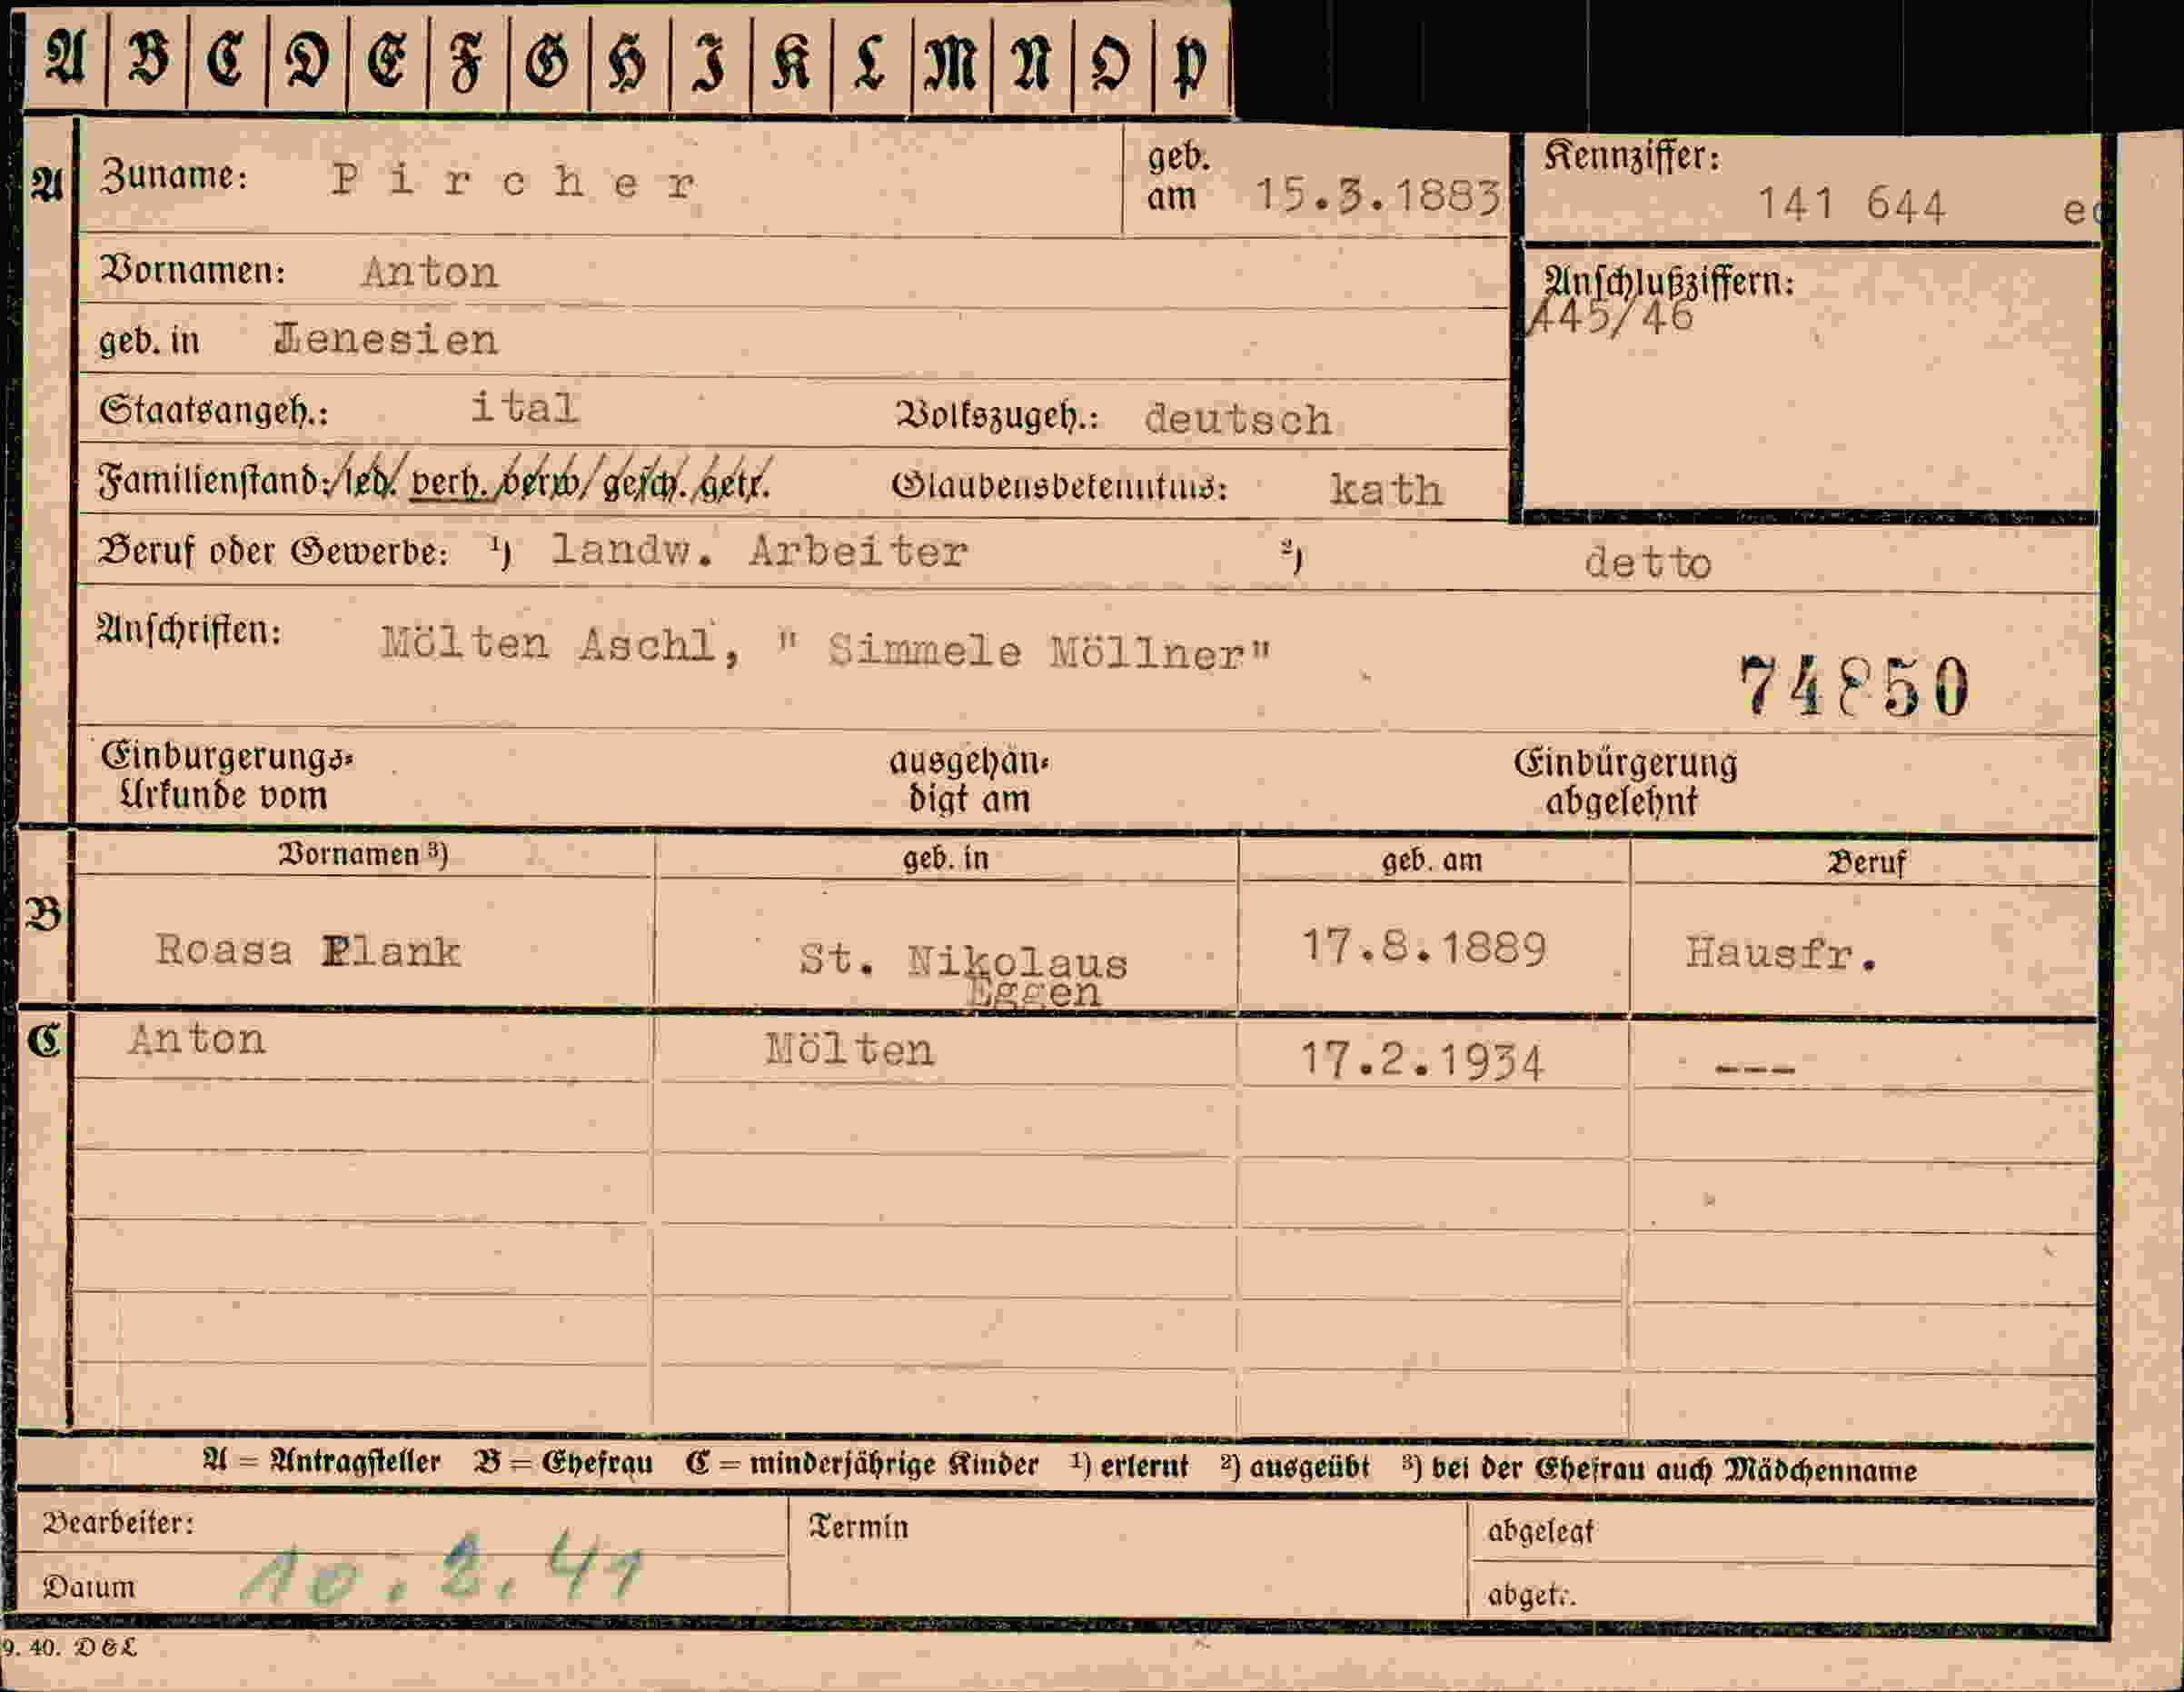 A B C D E F G H I K L M N O P
A Zuname: Pircher geb. am 15.3.1883 Kennziffer: 141 644
Vornamen: Anton Anschlußziffern: 445/46
geb. in Jenesien
Staatsangeh.: ital Volkszugeh.: deutsch
Familienstand: led. verh. verw. gesch. getr. Glaubensbekenntnis: kath
Beruf oder Gewerbe: ¹) landw. Arbeiter ²) detto
Anschriften: Mölten Aschl, " Simmele Möllner"
74850
Einbürgerungs-
Urkunde vom
ausgehän-
digt am
Einbürgerung
abgelehnt
Vornamen ³) geb. in geb. am Beruf
B Roasa Plank St. Nikolaus 17.8.1889 Hausfr.
Eggen
C Anton Mölten 17.2.1934 ---
A = Antragsteller B = Ehefrau C = minderjährige Kinder ¹) erlernt ²) ausgeübt ³) bei der Ehefrau auch Mädchenname
Bearbeiter: Termin abgelegt
Datum 10.2.41 abgetr.
9. 40. DGL